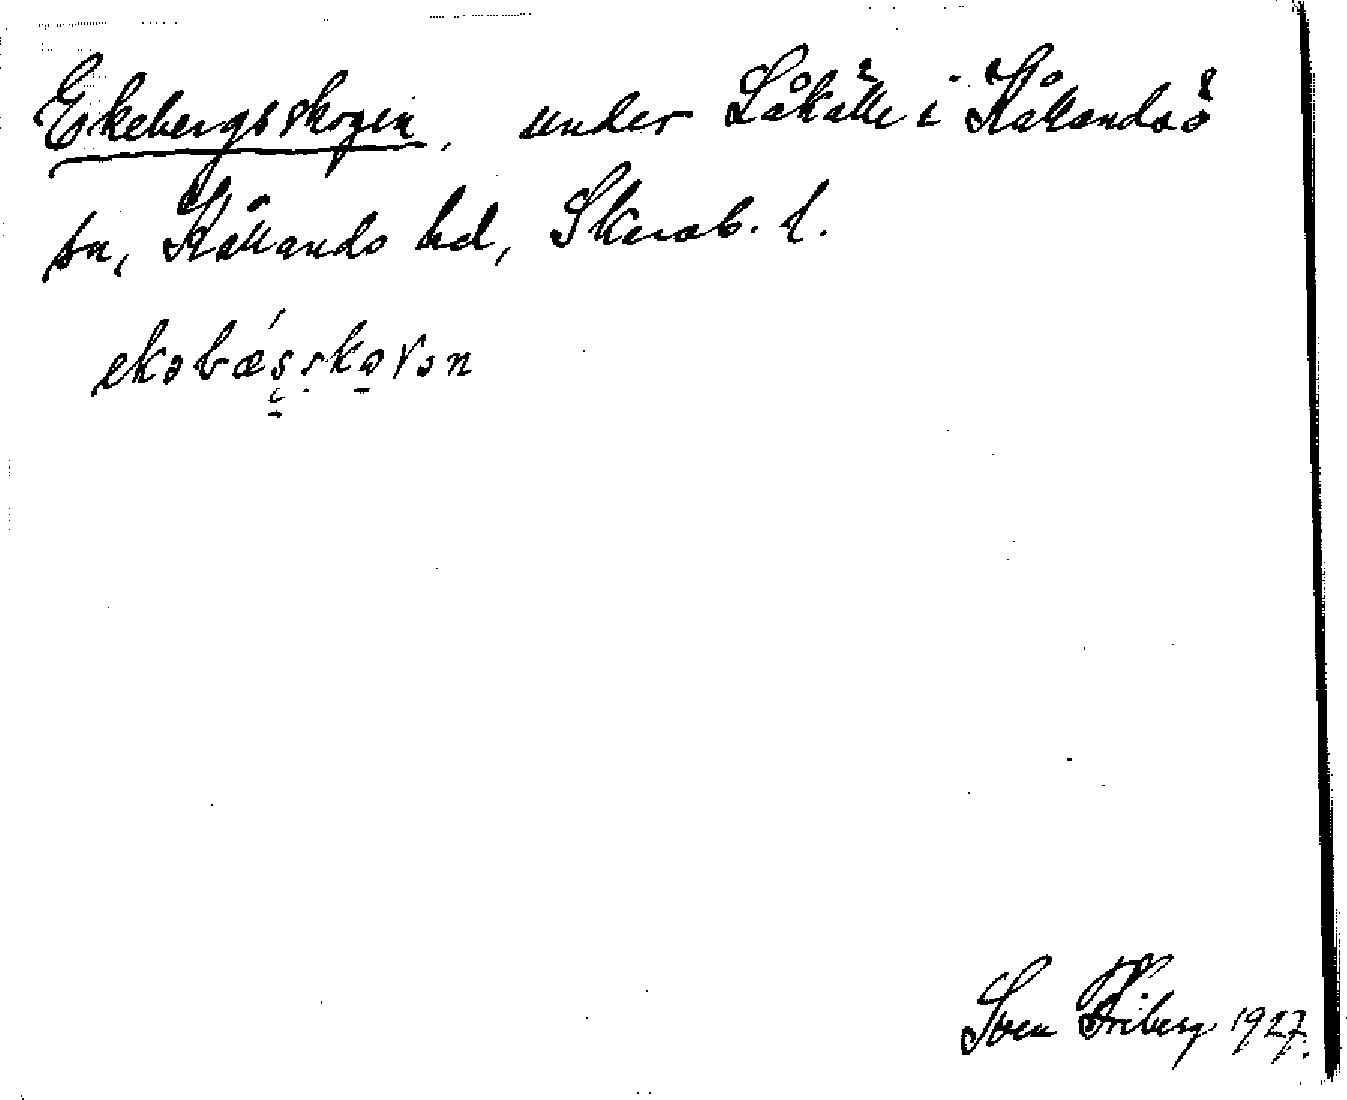 Ekebergsskogen, under Låkälle i Kållandsö
sn, Kållands hd, Skarab. l.
ekəbæ´sskoγən
Sven Friberg 1927.